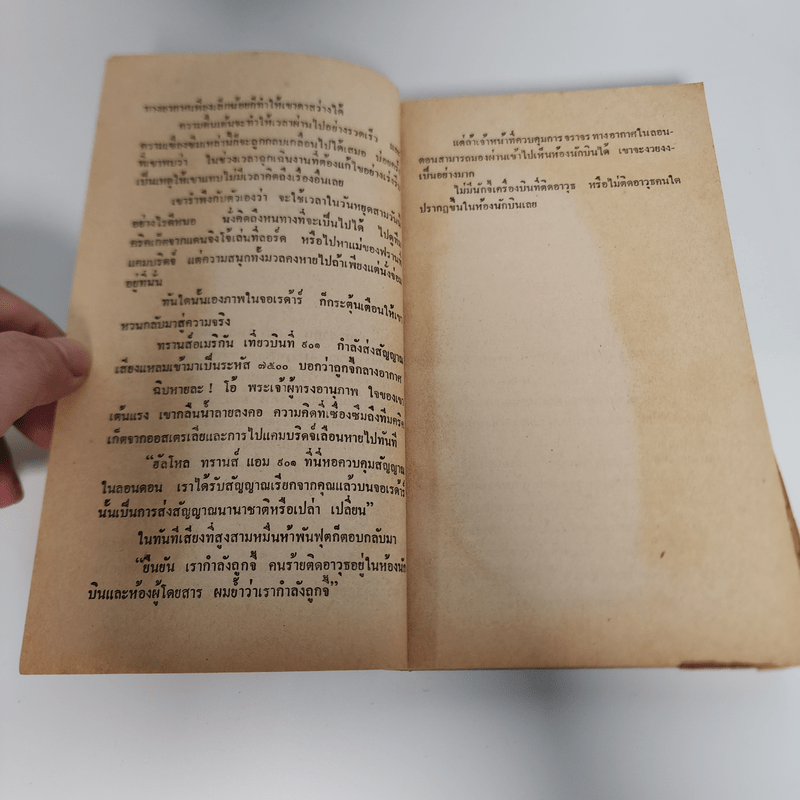 ทางอากาศเพียงเล็กน้อยก็ทำให้เขาตาสว่างได้
ความตื่นเต้นจะทำให้เวลาผ่านไปอย่างรวดเร็ว
ความเซื่องซึมเหล่านี้ก็จะถูกกลบเกลื่อนไปได้เสมอ บ่อยครั้ง
ที่เขาพบว่า ในช่วงเวลาฉุกเฉินงานที่ต้องแก้ไขอย่างเร่งด่วน
เป็นเหตุให้เขาแทบไม่มีเวลาคิดถึงเรื่องอื่นเลย
เขารำพึงกับตัวเองว่า จะใช้เวลาในวันหยุดสามวันนี้
อย่างไรดีหนอ นั่งคิดถึงหนทางที่จะเป็นไปได้ ไปดูทีม
คริคเก็ตจากแดนจิงโจ้เล่นที่ลอร์ด หรือไปหาแม่ของฟรานที่
แคมบริดจ์ แต่ความสนุกทั้งมวลคงหายไปถ้าเพียงแต่นั่งจ่อม
อยู่ที่นั่น
ทันใดนั้นเองภาพในจอเรด้าร์ ก็กระตุ้นเตือนให้เขา
หวนกลับมาสู่ความจริง
ทรานส์อเมริกัน เที่ยวบินที่ ๙๐๑ กำลังส่งสัญญาณ
เสียงแหลมเข้ามาเป็นระหัส ๗๕๐๐ บอกว่าถูกจี้กลางอากาศ
ฉิบหายละ ! โอ้ พระเจ้าผู้ทรงอานุภาพ ใจของเขา
เต้นแรง เขากลืนน้ำลายลงคอ ความคิดที่เซื่องซึมถึงทีมคริค
เก็ตจากออสเตรเลียและการไปแคมบริดจ์เลือนหายไปทันที
“ฮัลโหล ทรานส์ แอม ๙๐๑ ที่นี่หอควบคุมสัญญาณ
ในลอนดอน เราได้รับสัญญาณเรียกจากคุณแล้วบนจอเรด้าร์
นั่นเป็นการส่งสัญญาณนานาชาติหรือเปล่า เปลี่ยน”
ในทันทีเสียงที่สูงสามหมื่นห้าพันฟุตก็ตอบกลับมา
“ยืนยัน เรากำลังถูกจี้ คนร้ายติดอาวุธอยู่ในห้องนัก
บินและห้องผู้โดยสาร ผมย้ำว่าเรากำลังถูกจี้”
แต่ถ้าเจ้าหน้าที่ควบคุมการ จราจร ทาง อากาศ ในลอน-
ดอนสามารถมองผ่านเข้าไปเห็นห้องนักบินได้ เขาจะงวยงง
เป็นอย่างมาก
ไม่มีนักจี้เครื่องบินที่ติดอาวุธ หรือไม่ติดอาวุธคนใด
ปรากฏขึ้นในห้องนักบินเลย